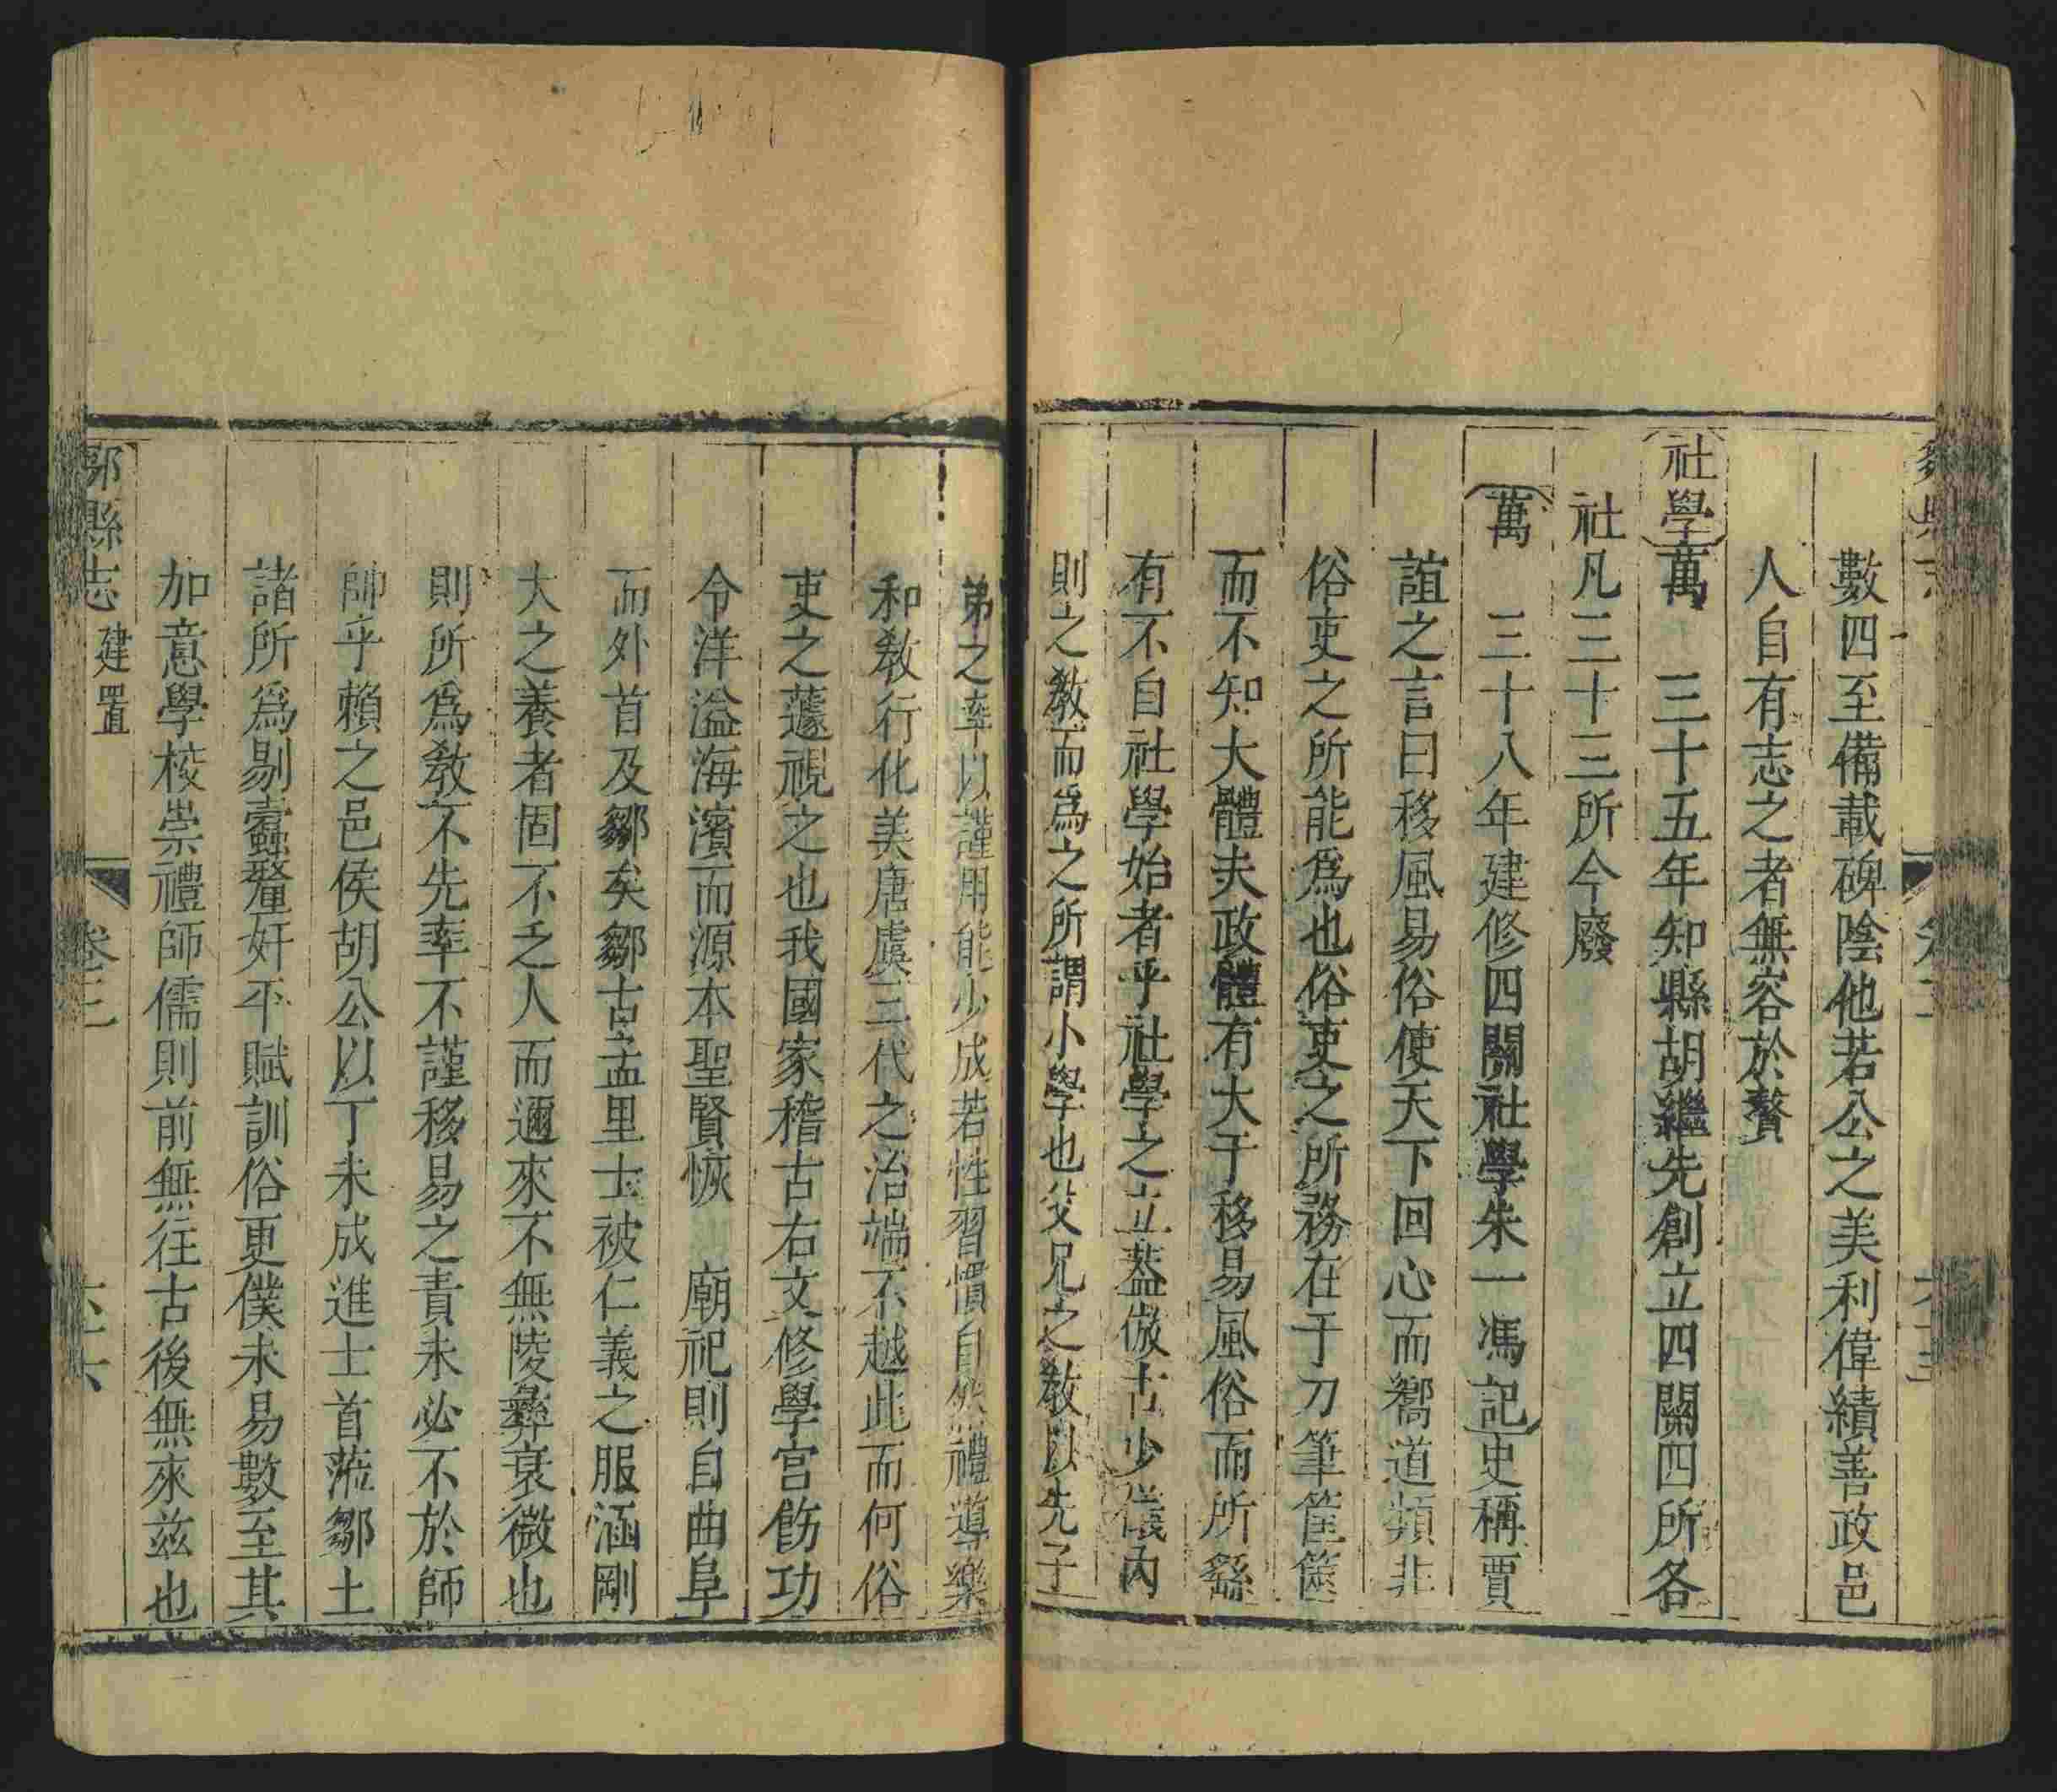 數四至備載碑陰他若公之美利偉績善政邑
人自有志之者無容於贅
社學萬 三十五年知縣胡繼先創立四關四所各
社凡三十三所今廢
萬 三十八年建修四關社學朱一馮記史稱賈
誼之言曰移風易俗使天下回心而嚮道類非
俗吏之所能爲也俗吏之所務在于刀筆筐篋
而不知大體夫政體有大于移易風俗而所繇
有不自社學始者乎社學之立蓋倣古少儀內
則之教而爲之所謂小學也父兄之教以先子
弟之率以謹用能少成若性習慣自然禮導樂
和教行化美唐虞三代之治端不越此而何俗
吏之蘧視之也我國家稽古右文修學宮飭功
令洋溢海濱而源本聖賢恢 廟祀則自曲阜
而外首及鄒矣鄒古孟里士被仁義之服涵剛
大之養者固不乏人而邇來不無陵彝衰微也
則所爲教不先率不謹移易之責未必不於師
帥乎賴之邑侯胡公以丁未成進士首蒞鄒土
諸所爲剔蠹釐奸平賦訓俗更僕未易數至其
加意學校崇禮師儒則前無往古後無來茲也
縣志 建置 卷三